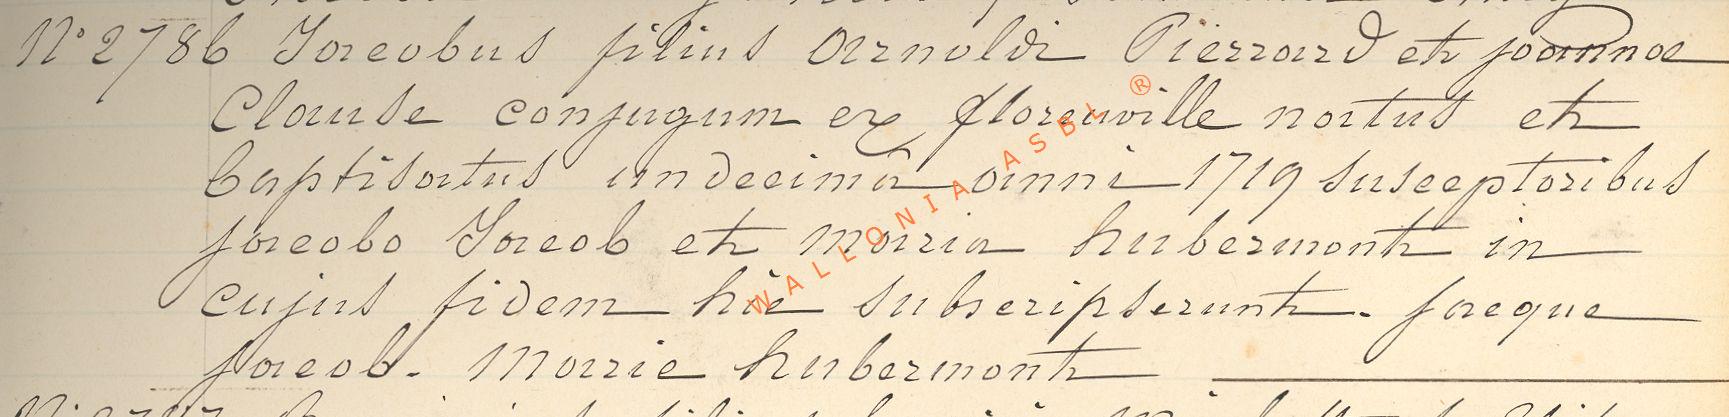 N° 2786 Jacobus filius Arnoldi Pierrard et joannae
Clause conjugum ex florenville natus et
baptisatus undecimâ anni 1719 susceptoribus
jacobo Jacob et maria hubermont in
cujus fidem hic subscripserunt. jacque
jacob. Marie hubermont
WALLONIA ASBL ®